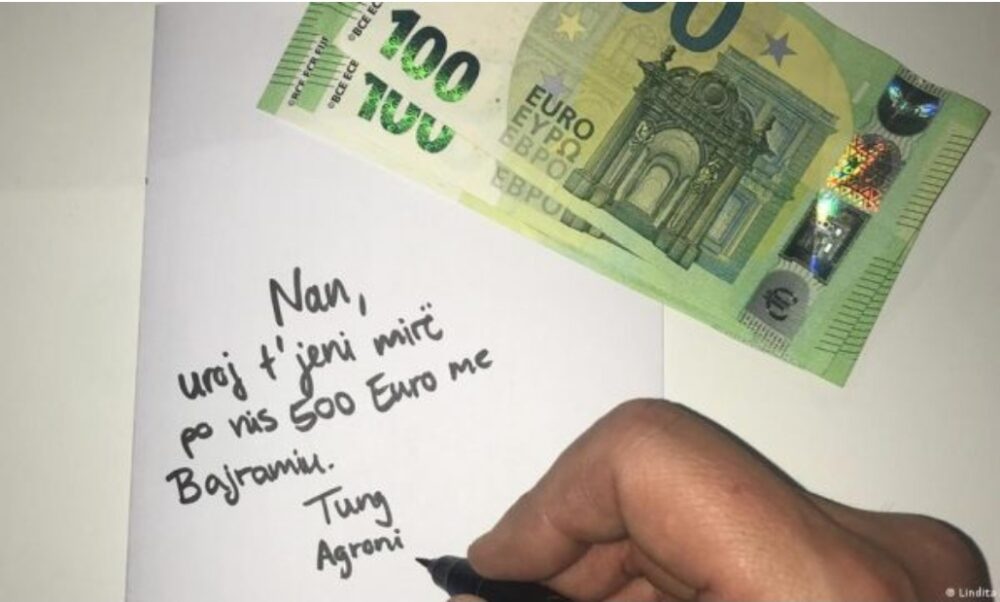 ©BCE ECB EZB
©BCE ECE
100
100
00
EURO
ΕΥΡΩ
ЕВРО
ЕВРО
€
Nan,
uroj t'jeni mirë
po nis 500 Euro me
Bajramin.
Tung
Agroni
© Lindita